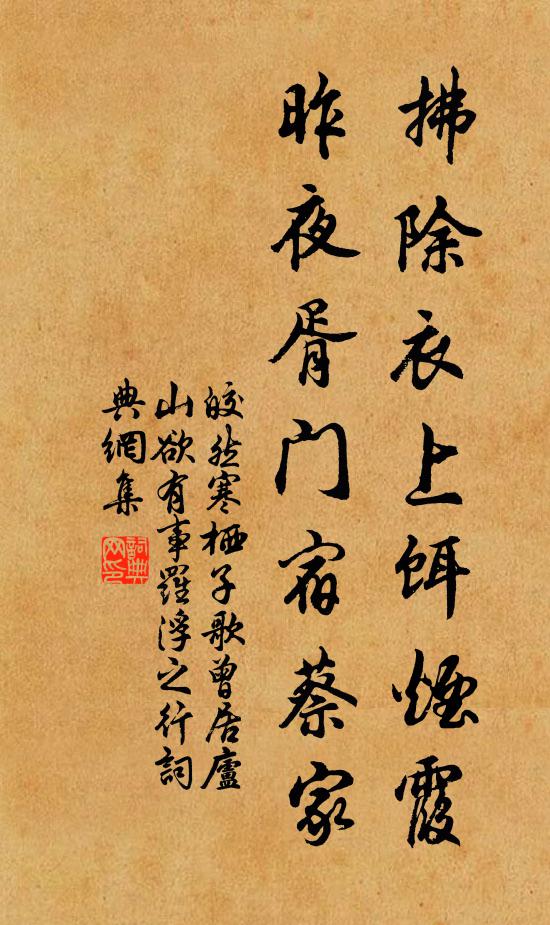 拂除衣上餌煙霞
昨夜胥门宿蔡家
皎然寒栖子歌曾居廬
山欲有事羅浮之行詞
典網集
詞典
网印